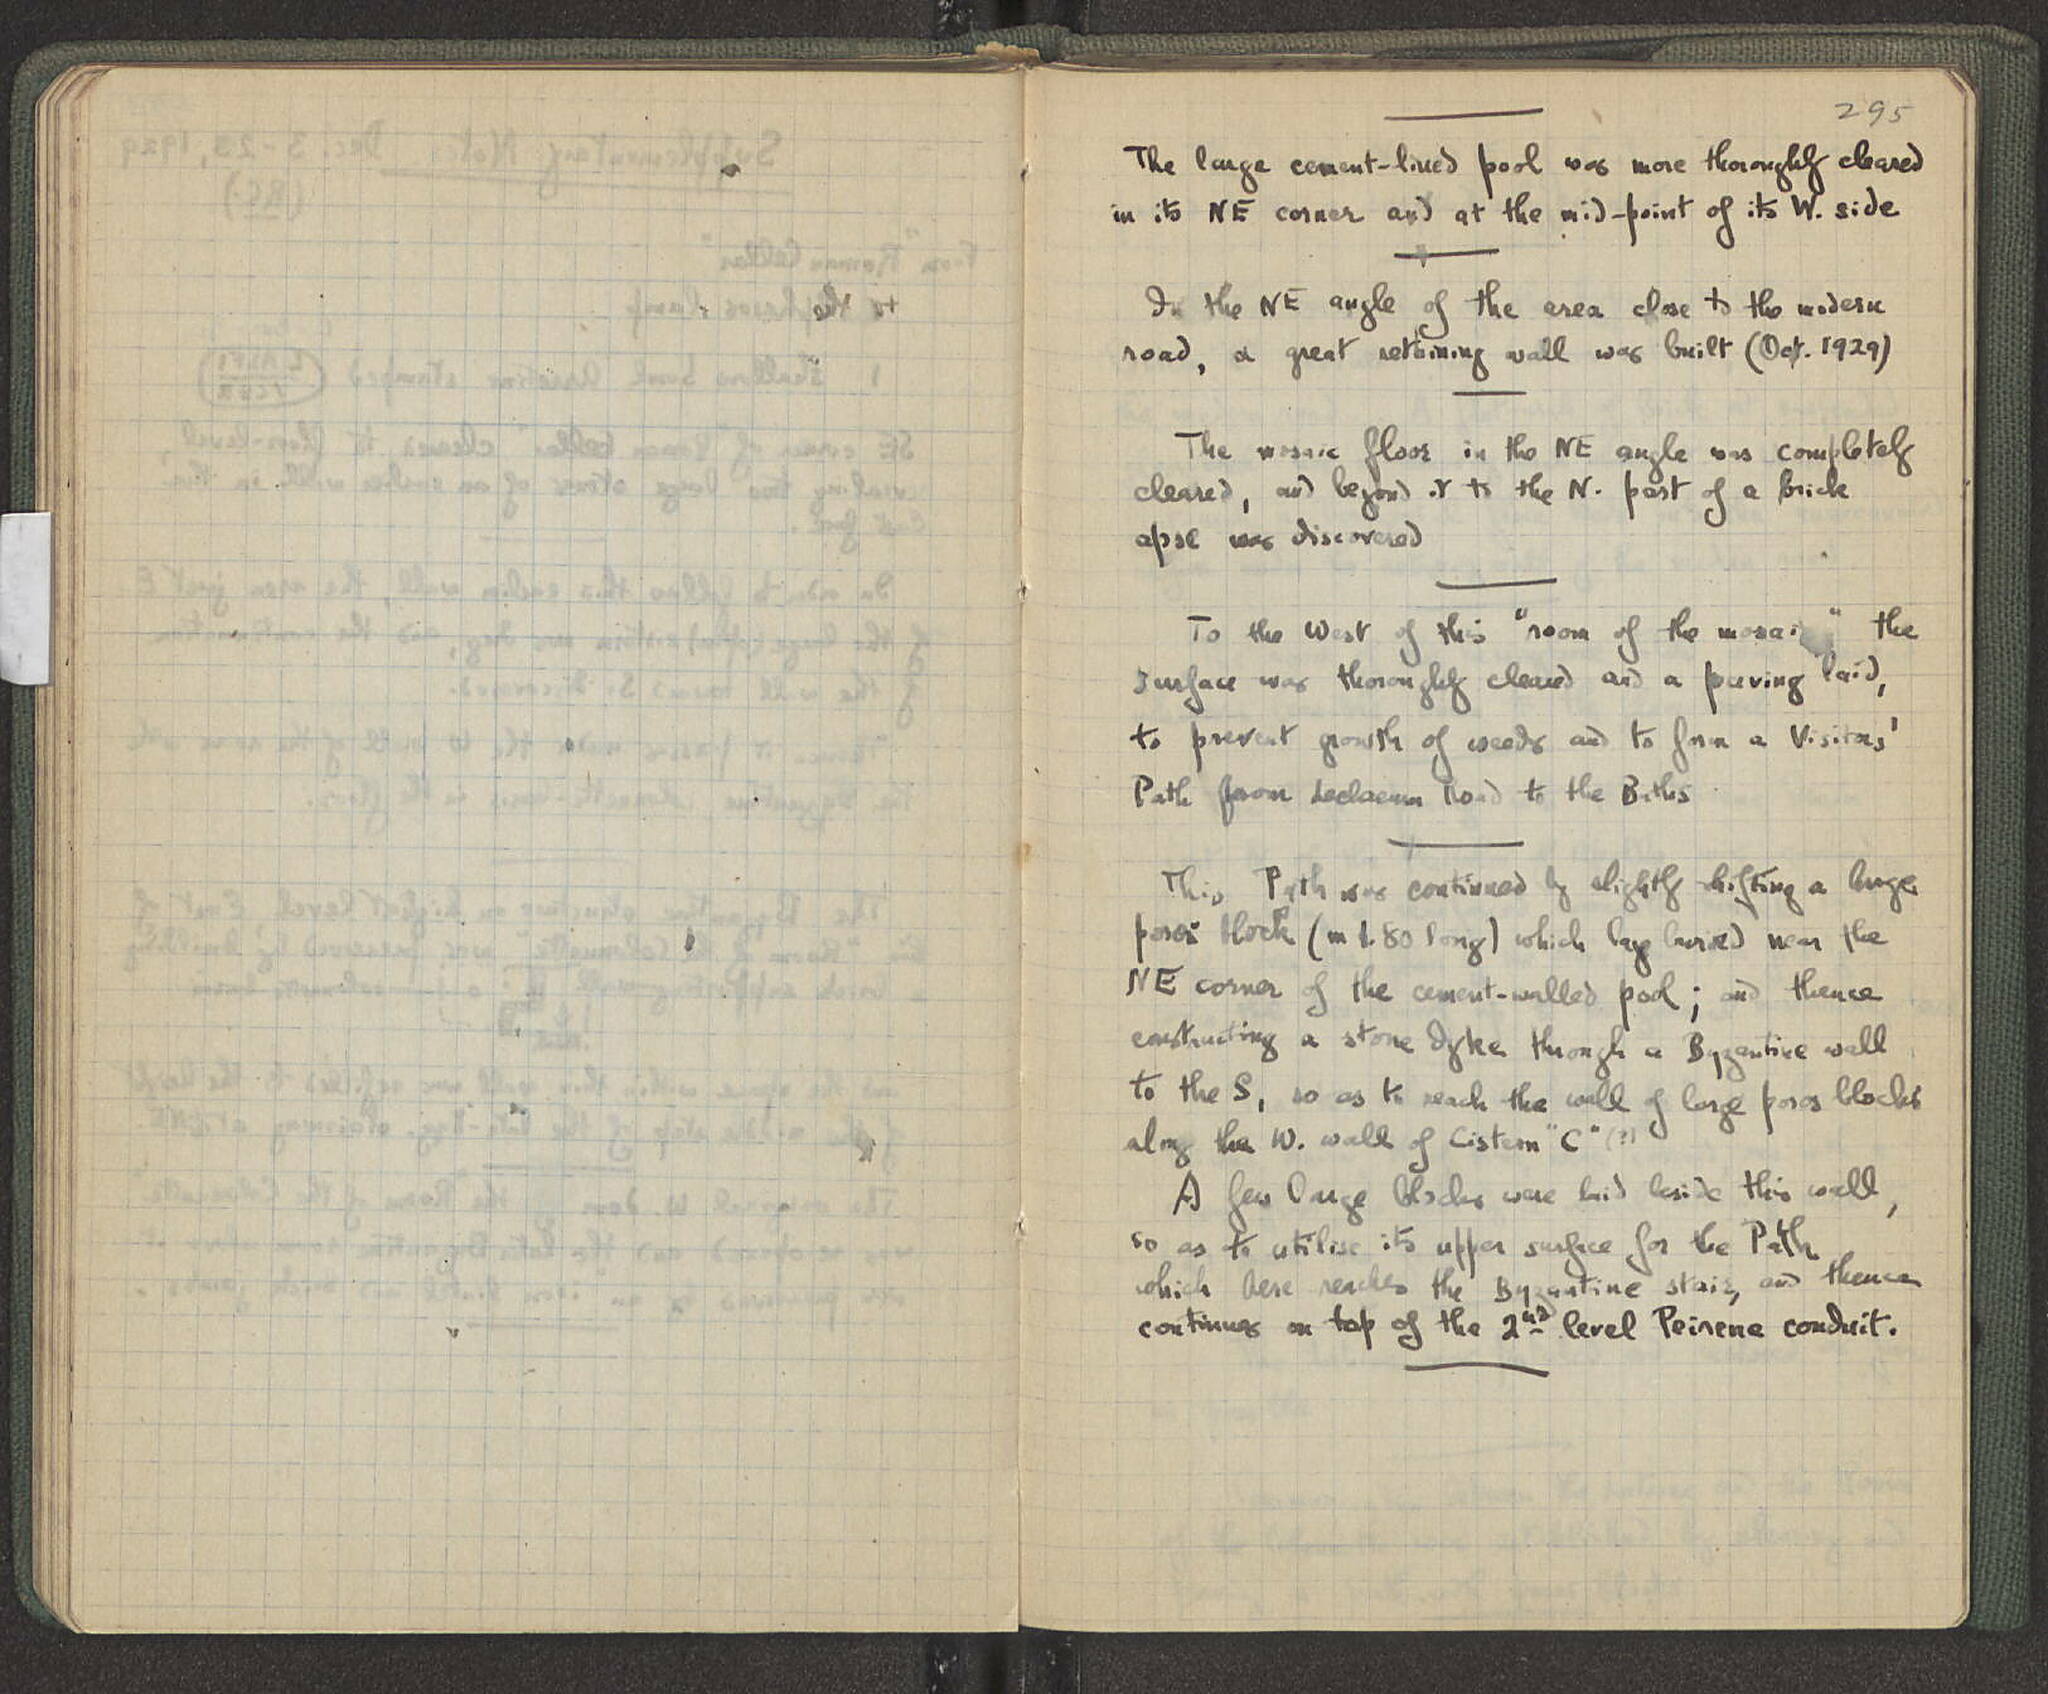 295
The large cement-lined pool was more thoroughly cleared
in its NE corner and at the mid-point of its W. side
In the NE angle of the area close to the modern
road, a great retaining wall was built (Oct. 1929)
The mosaic floor in the NE angle was completely
cleared, and beyond it to the N. part of a brick
apse was discovered
To the West of this "room of the mosaic" the
surface was thoroughly cleared and a paving laid,
to prevent growth of weeds and to form a Visitors'
Path from Lechaeum Road to the Baths
This Path was continued by slightly shifting a large
poros block (m 1.80 long) which lay buried near the
NE corner of the cement-walled pool; and thence
constructing a stone dyke through a Byzantine wall
to the S, so as to reach the wall of large poros blocks
along the W. wall of Cistern "C" (?)
A few large blocks were laid beside this wall,
so as to utilise its upper surface for the Path
which here reaches the Byzantine stair, and thence
continues on top of the 2nd level Peirene conduit.